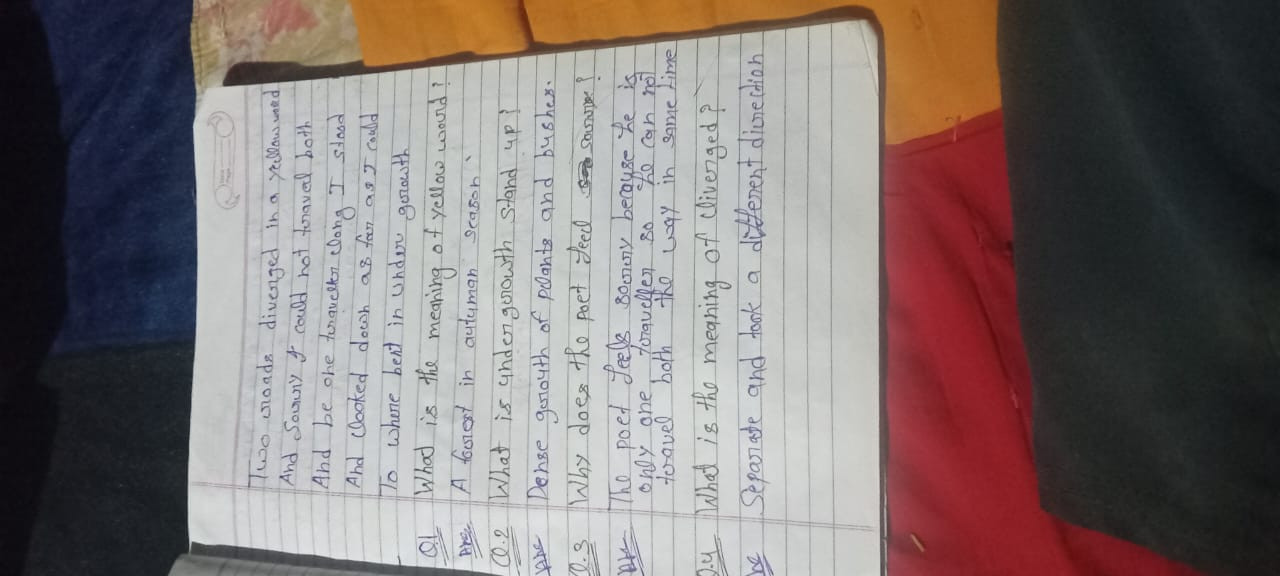 Two roads diverged in a yellow wood
And Sorry I could not travel both
And be one traveller long I stood
And looked down as far as I could
To where bent in under growth
Q1 What is the meaning of yellow would?
Ans A forest in autuman season.
Q.2 What is undergrowth stand up?
Ans Dense growth of plants and bushes.
Q.3 Why does the poet feel sorry?
Ans The poet feels sorry because he is
only one traveller so he can not
travel both the way in same time
Q4 What is the meaning of diverged?
Separate and took a different direction